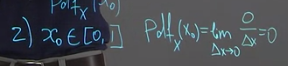 Pdf_X(x₀)
2) x₀ ∈ [0,1] Pdf_X(x₀) = lim_{Δx→0} 0/Δx = 0